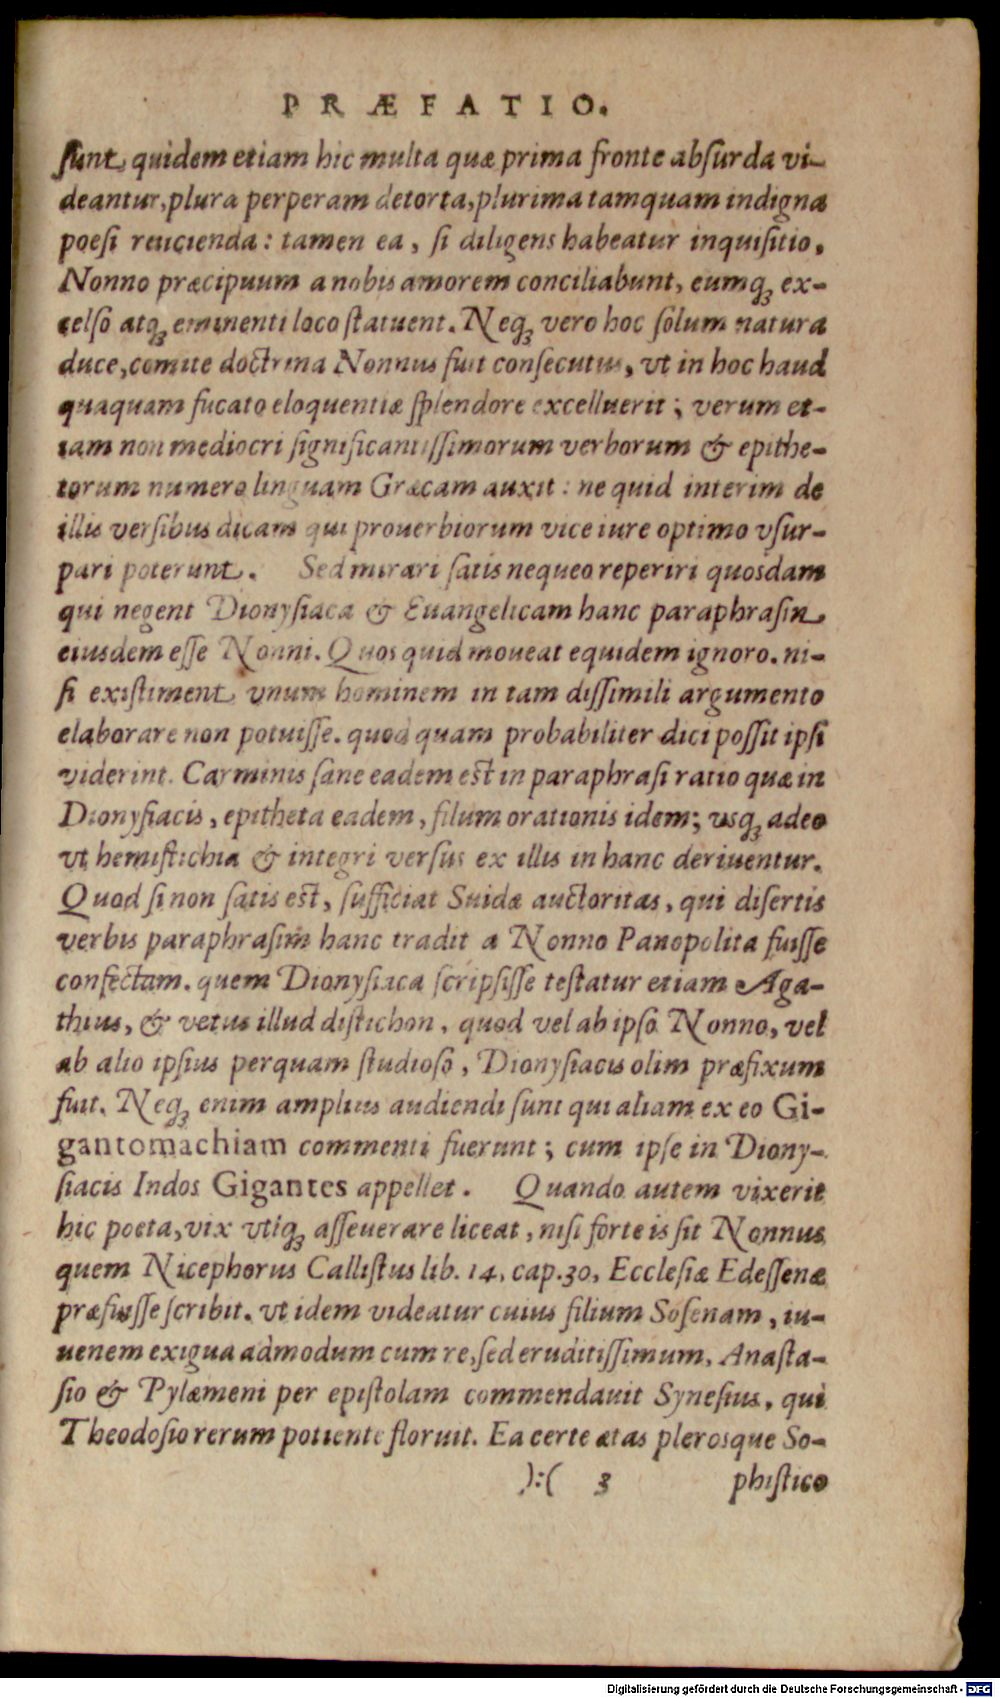 PRÆFATIO.
sunt quidem etiam hic multa quæ prima fronte absurda vi-
deantur, plura perperam detorta, plurima tamquam indigna
poesi reiicienda: tamen ea, si diligens habeatur inquisitio,
Nonno præcipuum a nobis amorem conciliabunt, eumq; ex-
celso atq; eminenti loco statuent. Neq; vero hoc solum natura
duce, comite doctrina Nonnus fuit consecutus, vt in hoc haud
quaquam fucato eloquentiæ splendore excelluerit; verum et-
iam non mediocri significantissimorum verborum & epithe-
torum numero linguam Græcam auxit: ne quid interim de
illis versibus dicam qui prouerbiorum vice iure optimo vsur-
pari poterunt. Sed mirari satis nequeo reperiri quosdam
qui negent Dionysiaca & Euangelicam hanc paraphrasin
eiusdem esse Nonni. Quos quid moueat equidem ignoro. ni-
si existiment vnum hominem in tam dissimili argumento
elaborare non potuisse. quod quam probabiliter dici possit ipsi
viderint. Carminis sane eadem est in paraphrasi ratio quæ in
Dionysiacis, epitheta eadem, filum orationis idem; usq; adeo
vt hemistichia & integri versus ex illis in hanc deriuentur.
Quod si non satis est, sufficiat Suidæ auctoritas, qui disertis
verbis paraphrasim hanc tradit a Nonno Panopolita fuisse
confectam. quem Dionysiaca scripsisse testatur etiam Aga-
thius, & vetus illud distichon, quod vel ab ipso Nonno, vel
ab alio ipsius perquam studioso, Dionysiacis olim præfixum
fuit. Neq; enim amplius audiendi sunt qui aliam ex eo Gi-
gantomachiam commenti fuerunt; cum ipse in Diony-
siacis Indos Gigantes appellet. Quando autem vixerit
hic poeta, vix vtiq; asseuerare liceat, nisi forte is sit Nonnus
quem Nicephorus Callistus lib. 14, cap. 30, Ecclesiæ Edessenæ
præfuisse scribit. vt idem videatur cuius filium Sosenam, iu-
uenem exigua admodum cum re, sed eruditissimum, Anasta-
sio & Pylæmeni per epistolam commendauit Synesius, qui
Theodosio rerum potiente floruit. Ea certe ætas plerosque So-
):( 3 phistico
Digitalisierung gefördert durch die Deutsche Forschungsgemeinschaft - DFG